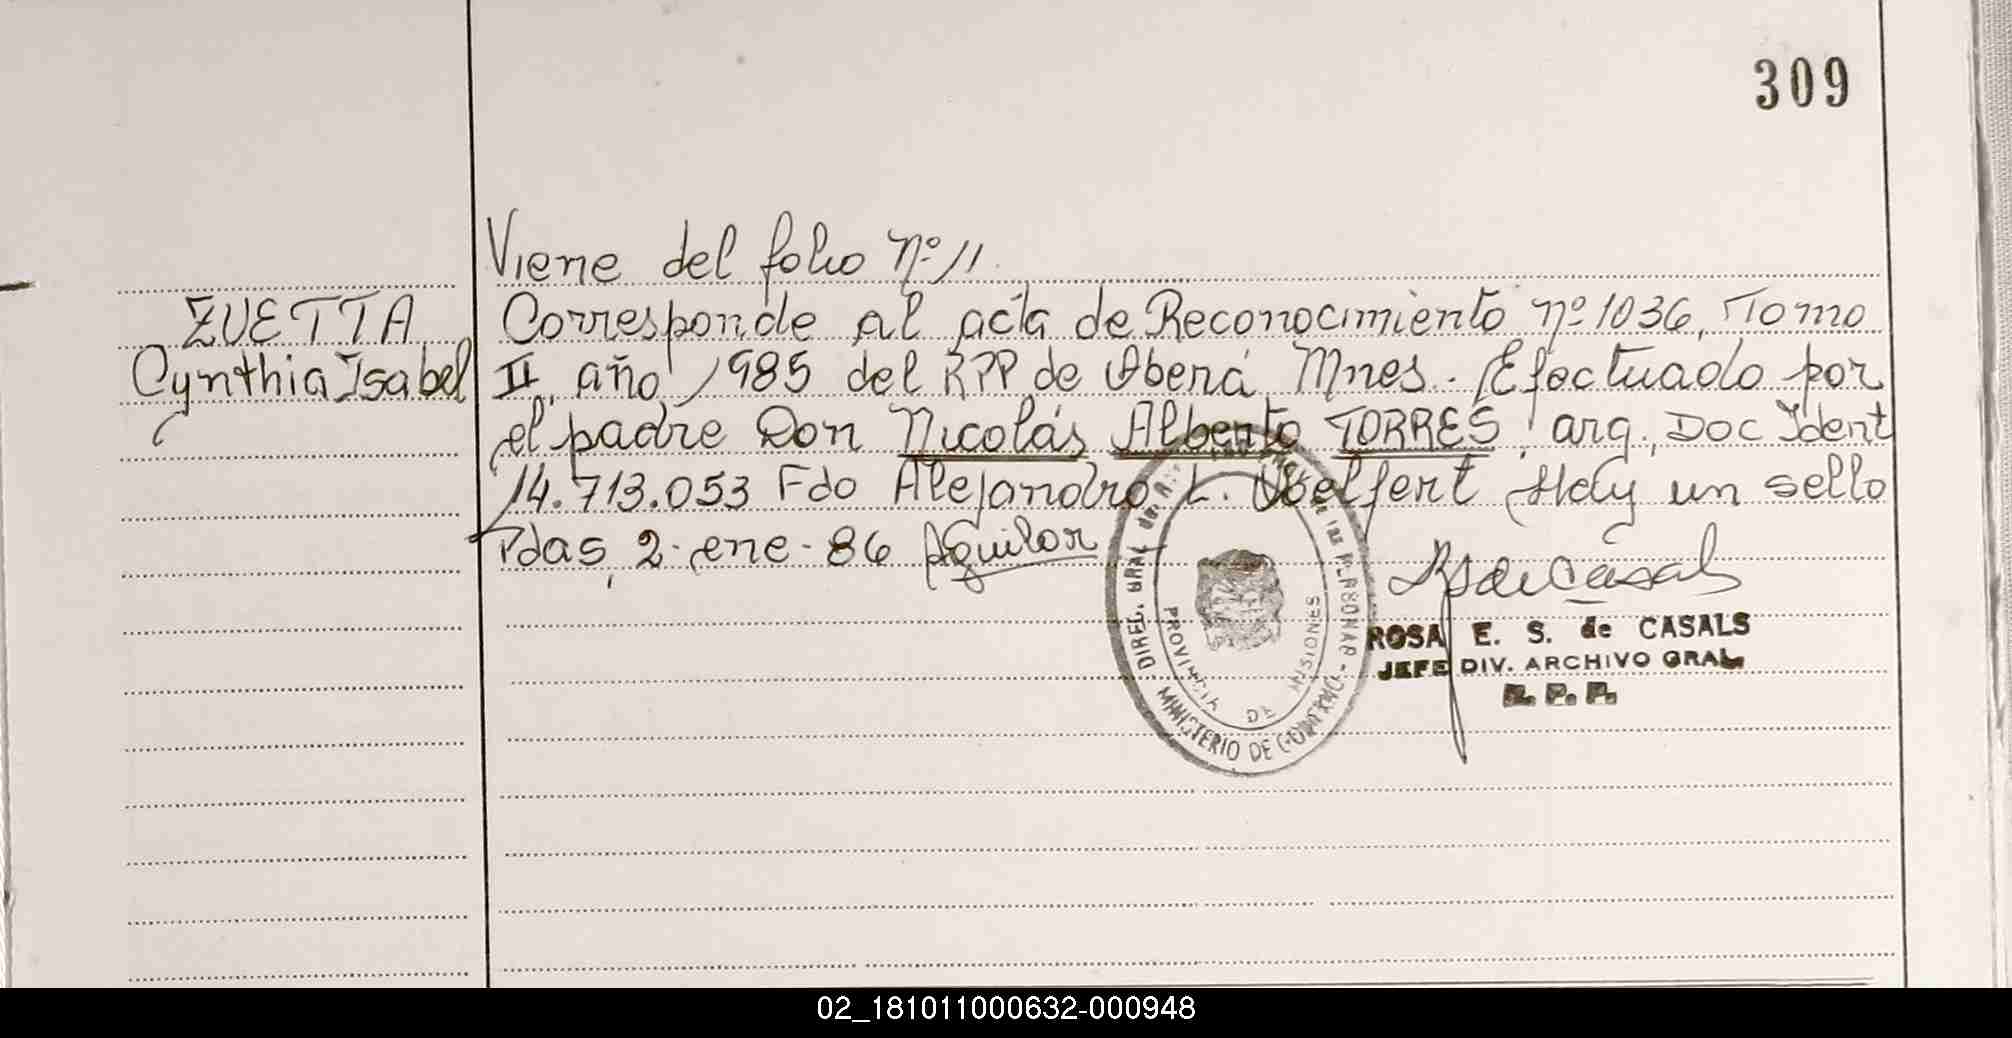 309
Viene del folio Nº 11
ZUETTA
Cynthia Isabel
Corresponde al acta de Reconocimiento nº 1036, Tomo
II, año 1985 del RPP de Oberá Mnes. Efectuado por
el padre Don Nicolás Alberto TORRES, arg., Doc Ident
14.713.053 Fdo Alejandro L. Hay un sello
Pdas, 2-ene-86 Aguilar
RSdeCasals
ROSA E. S. de CASALS
JEFE DIV. ARCHIVO GRAL
R. P. P.
DIREC. GRAL de las PERSONAS
MINISTERIO DE GOBIERNO
PROVINCIA DE MISIONES
02_181011000632-000948